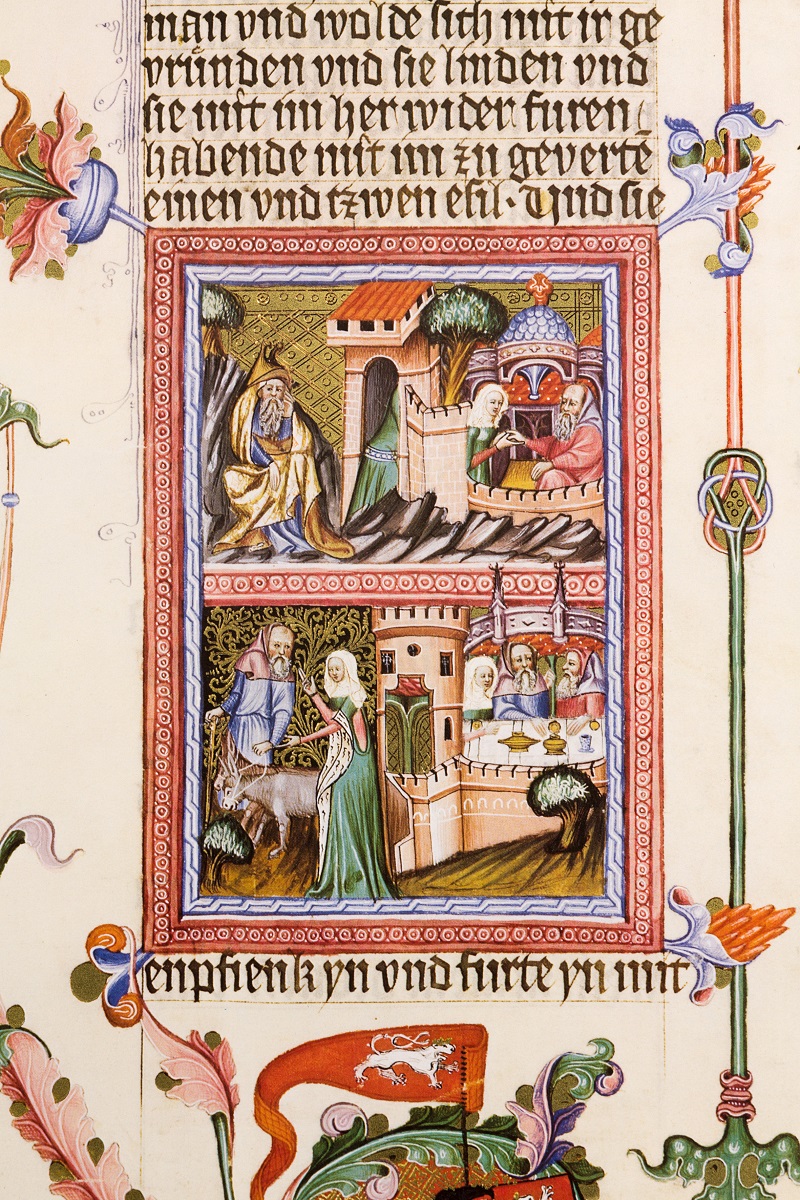 man vnd wolde sich mit ir ge
vrůnden vnd sie linden vnd
sie mit im her wider furen
habende mit im zu geverte
einen vnd tzwen esil· Und sie
enpfienk yn vnd furte yn mit